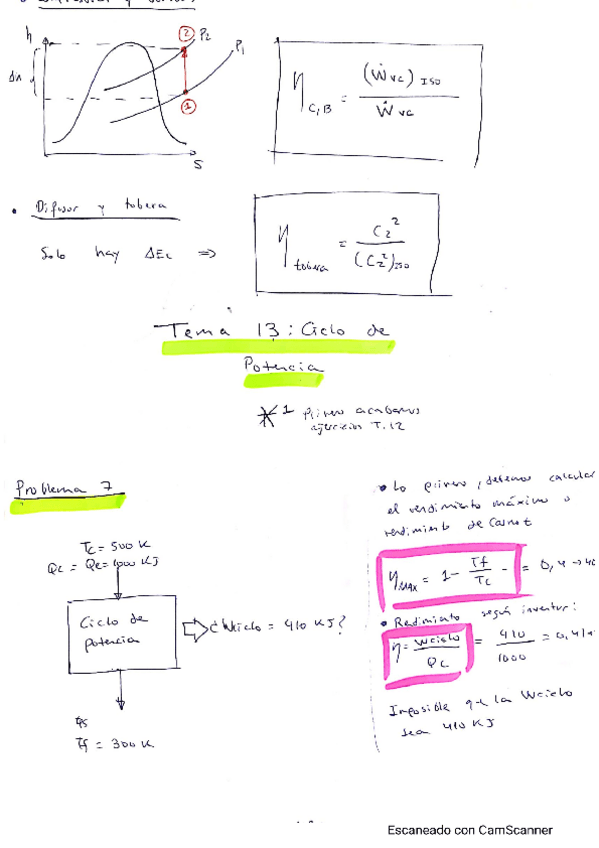 h
②
P2
P1
Δh
①
S
η C,B = (Ẇvc) ISO / Ẇvc
• Difusor y tobera
Solo hay ΔEc ⇒
η tobera = C2² / (C2²)ISO
Tema 13: Ciclo de
Potencia
*1 Primero acabamos
ejercicios T.12
Problema 7
Tc = 500 K
Qc = Qe = 1000 KJ
Ciclo de
potencia
¿Wciclo = 410 KJ?
Tf = 300 K
• Lo primero, debemos calcular
el rendimiento máximo o
rendimiento de Carnot
ηMAX = 1 - Tf / Tc = 0,4 →
• Rendimiento según inventor:
η = Wciclo / Qc = 410 / 1000 = 0,41
Imposible que la Wciclo
sea 410 KJ
Escaneado con CamScanner